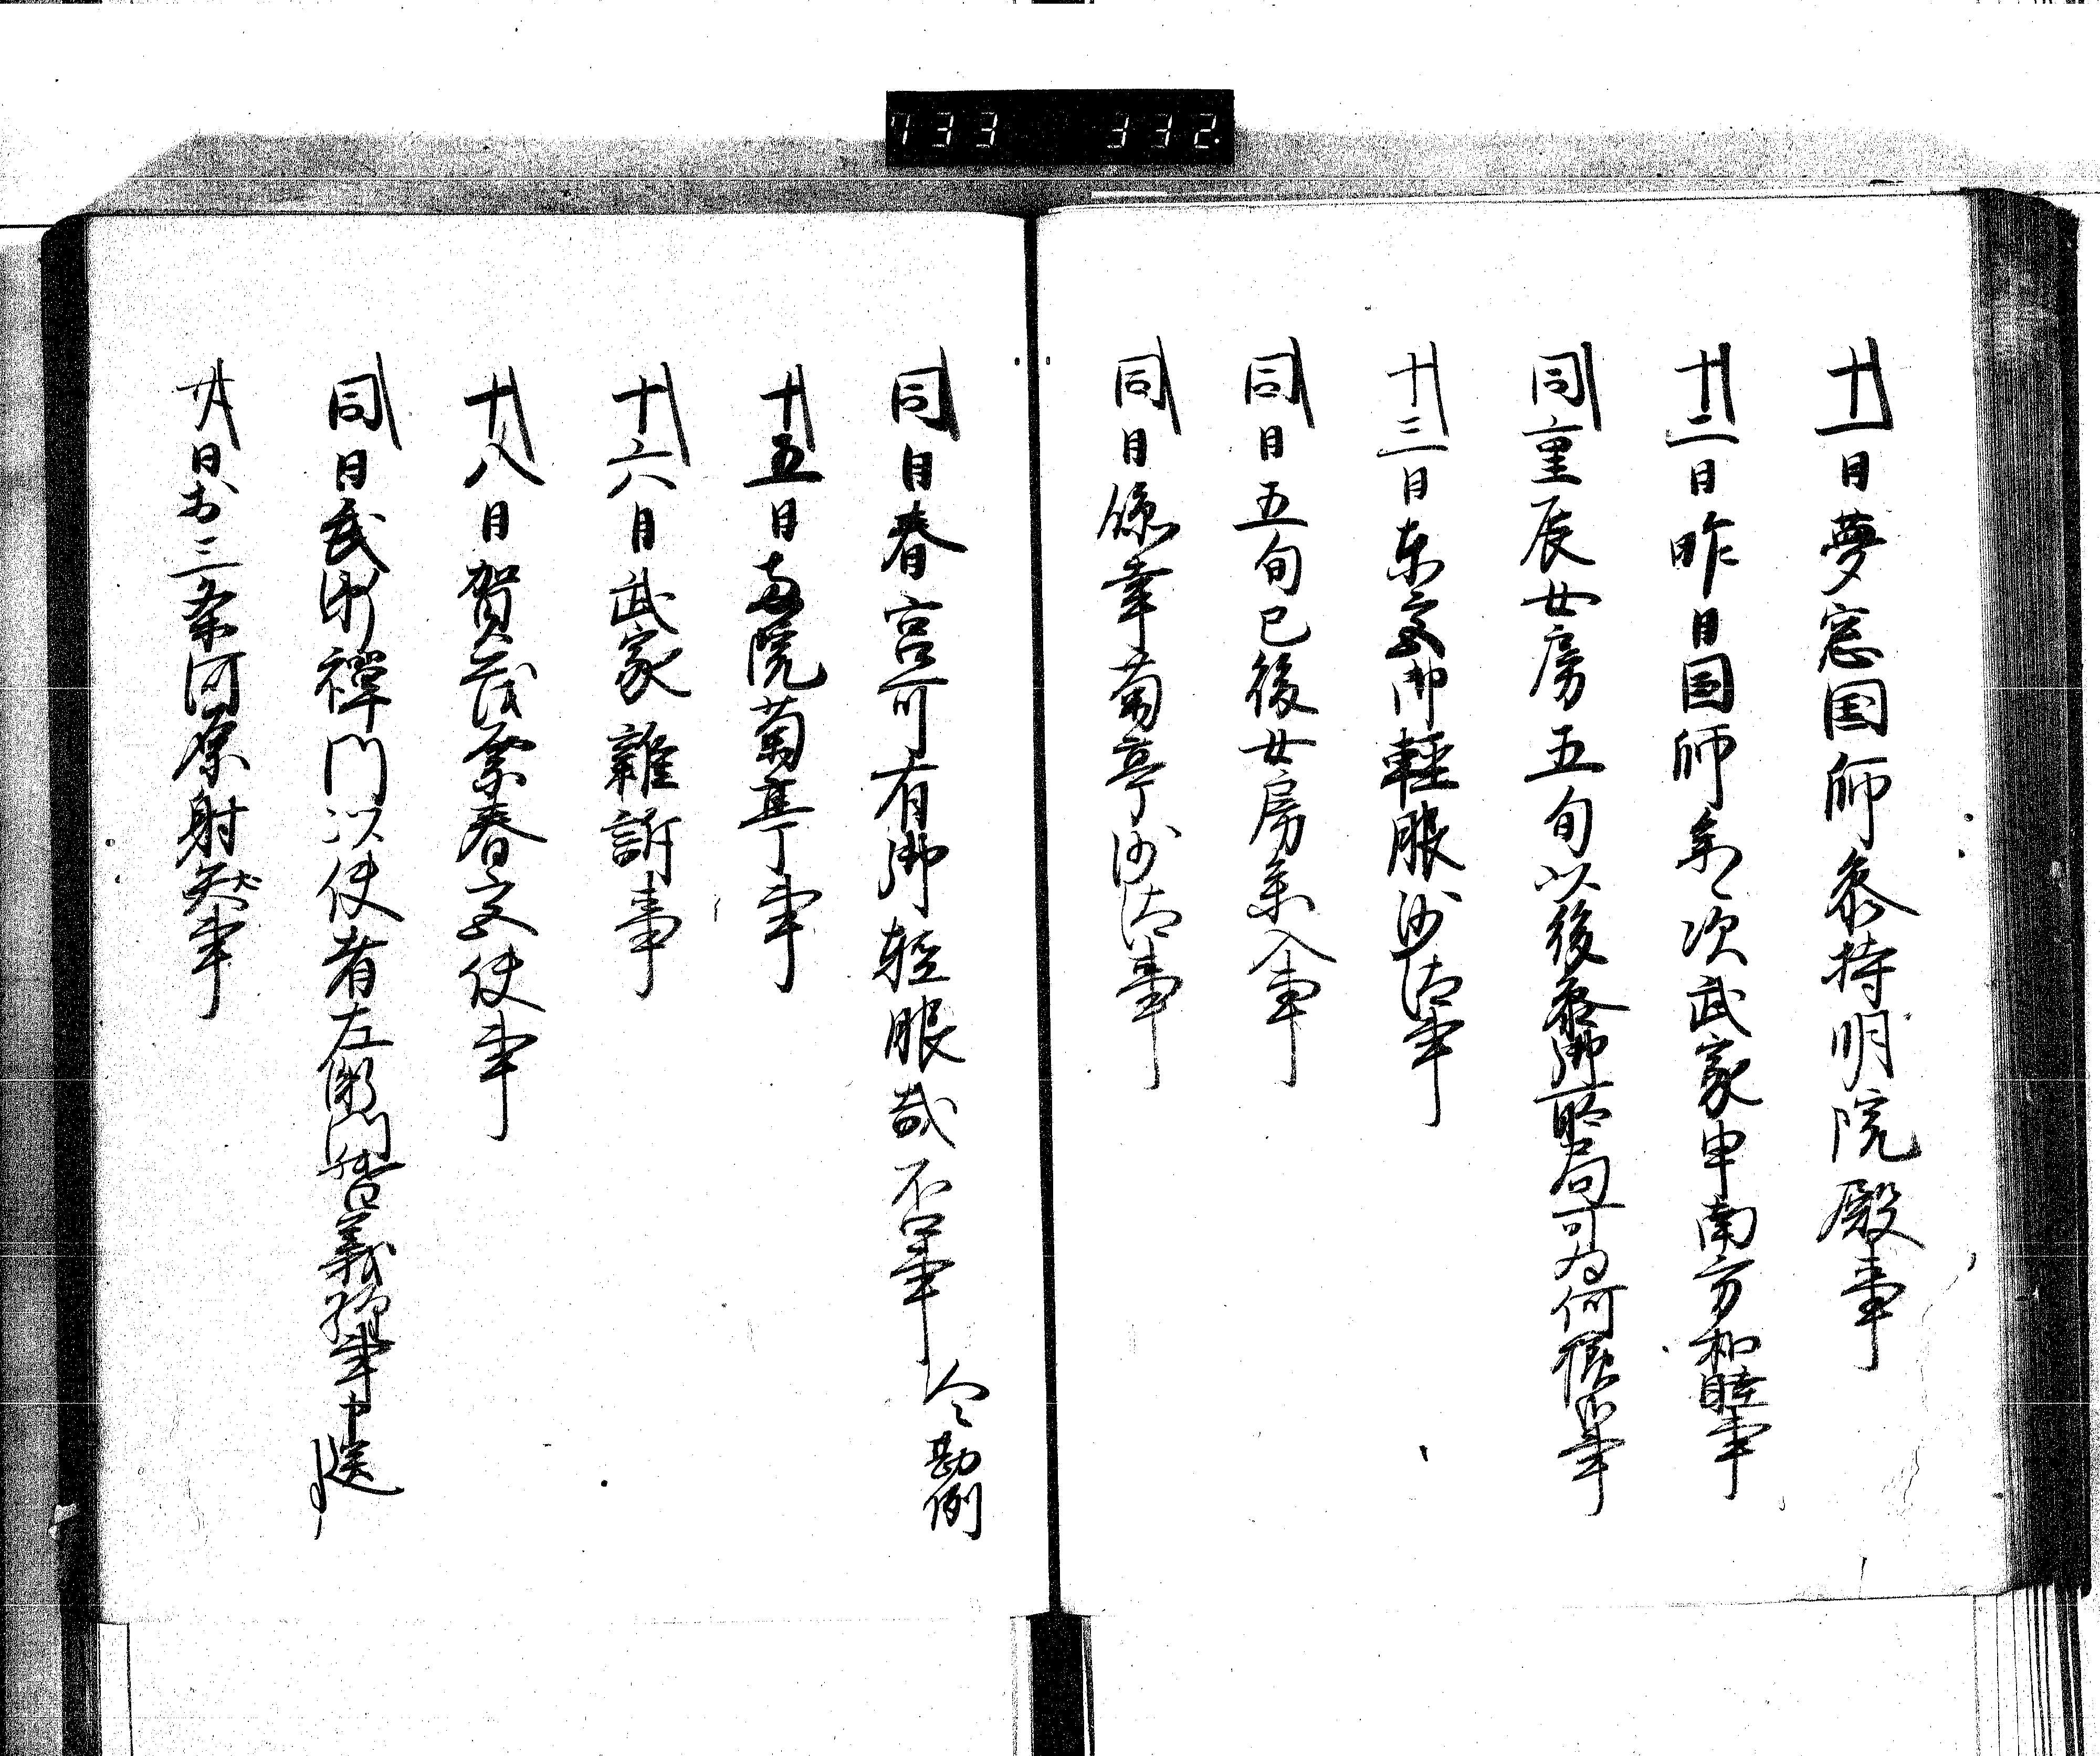 733 332
十一日夢窓国師参持明院殿事
十二日昨日国師参次武家申南方和睦事
同重辰女房五旬以後参御前局可為何様哉事
十三日東宮御軽服沙汰事
同日五旬已後女房参入事
同日臨幸萄亭沙汰事
同日春宮可有御軽服哉否事 今勘例
十五日両院萄亭事
十六日武家雑訴事
十八日賀茂祭春宮使事
同日武衛禅門以使者左衛門督義詮事申送
廿八日於三条河原射犬事